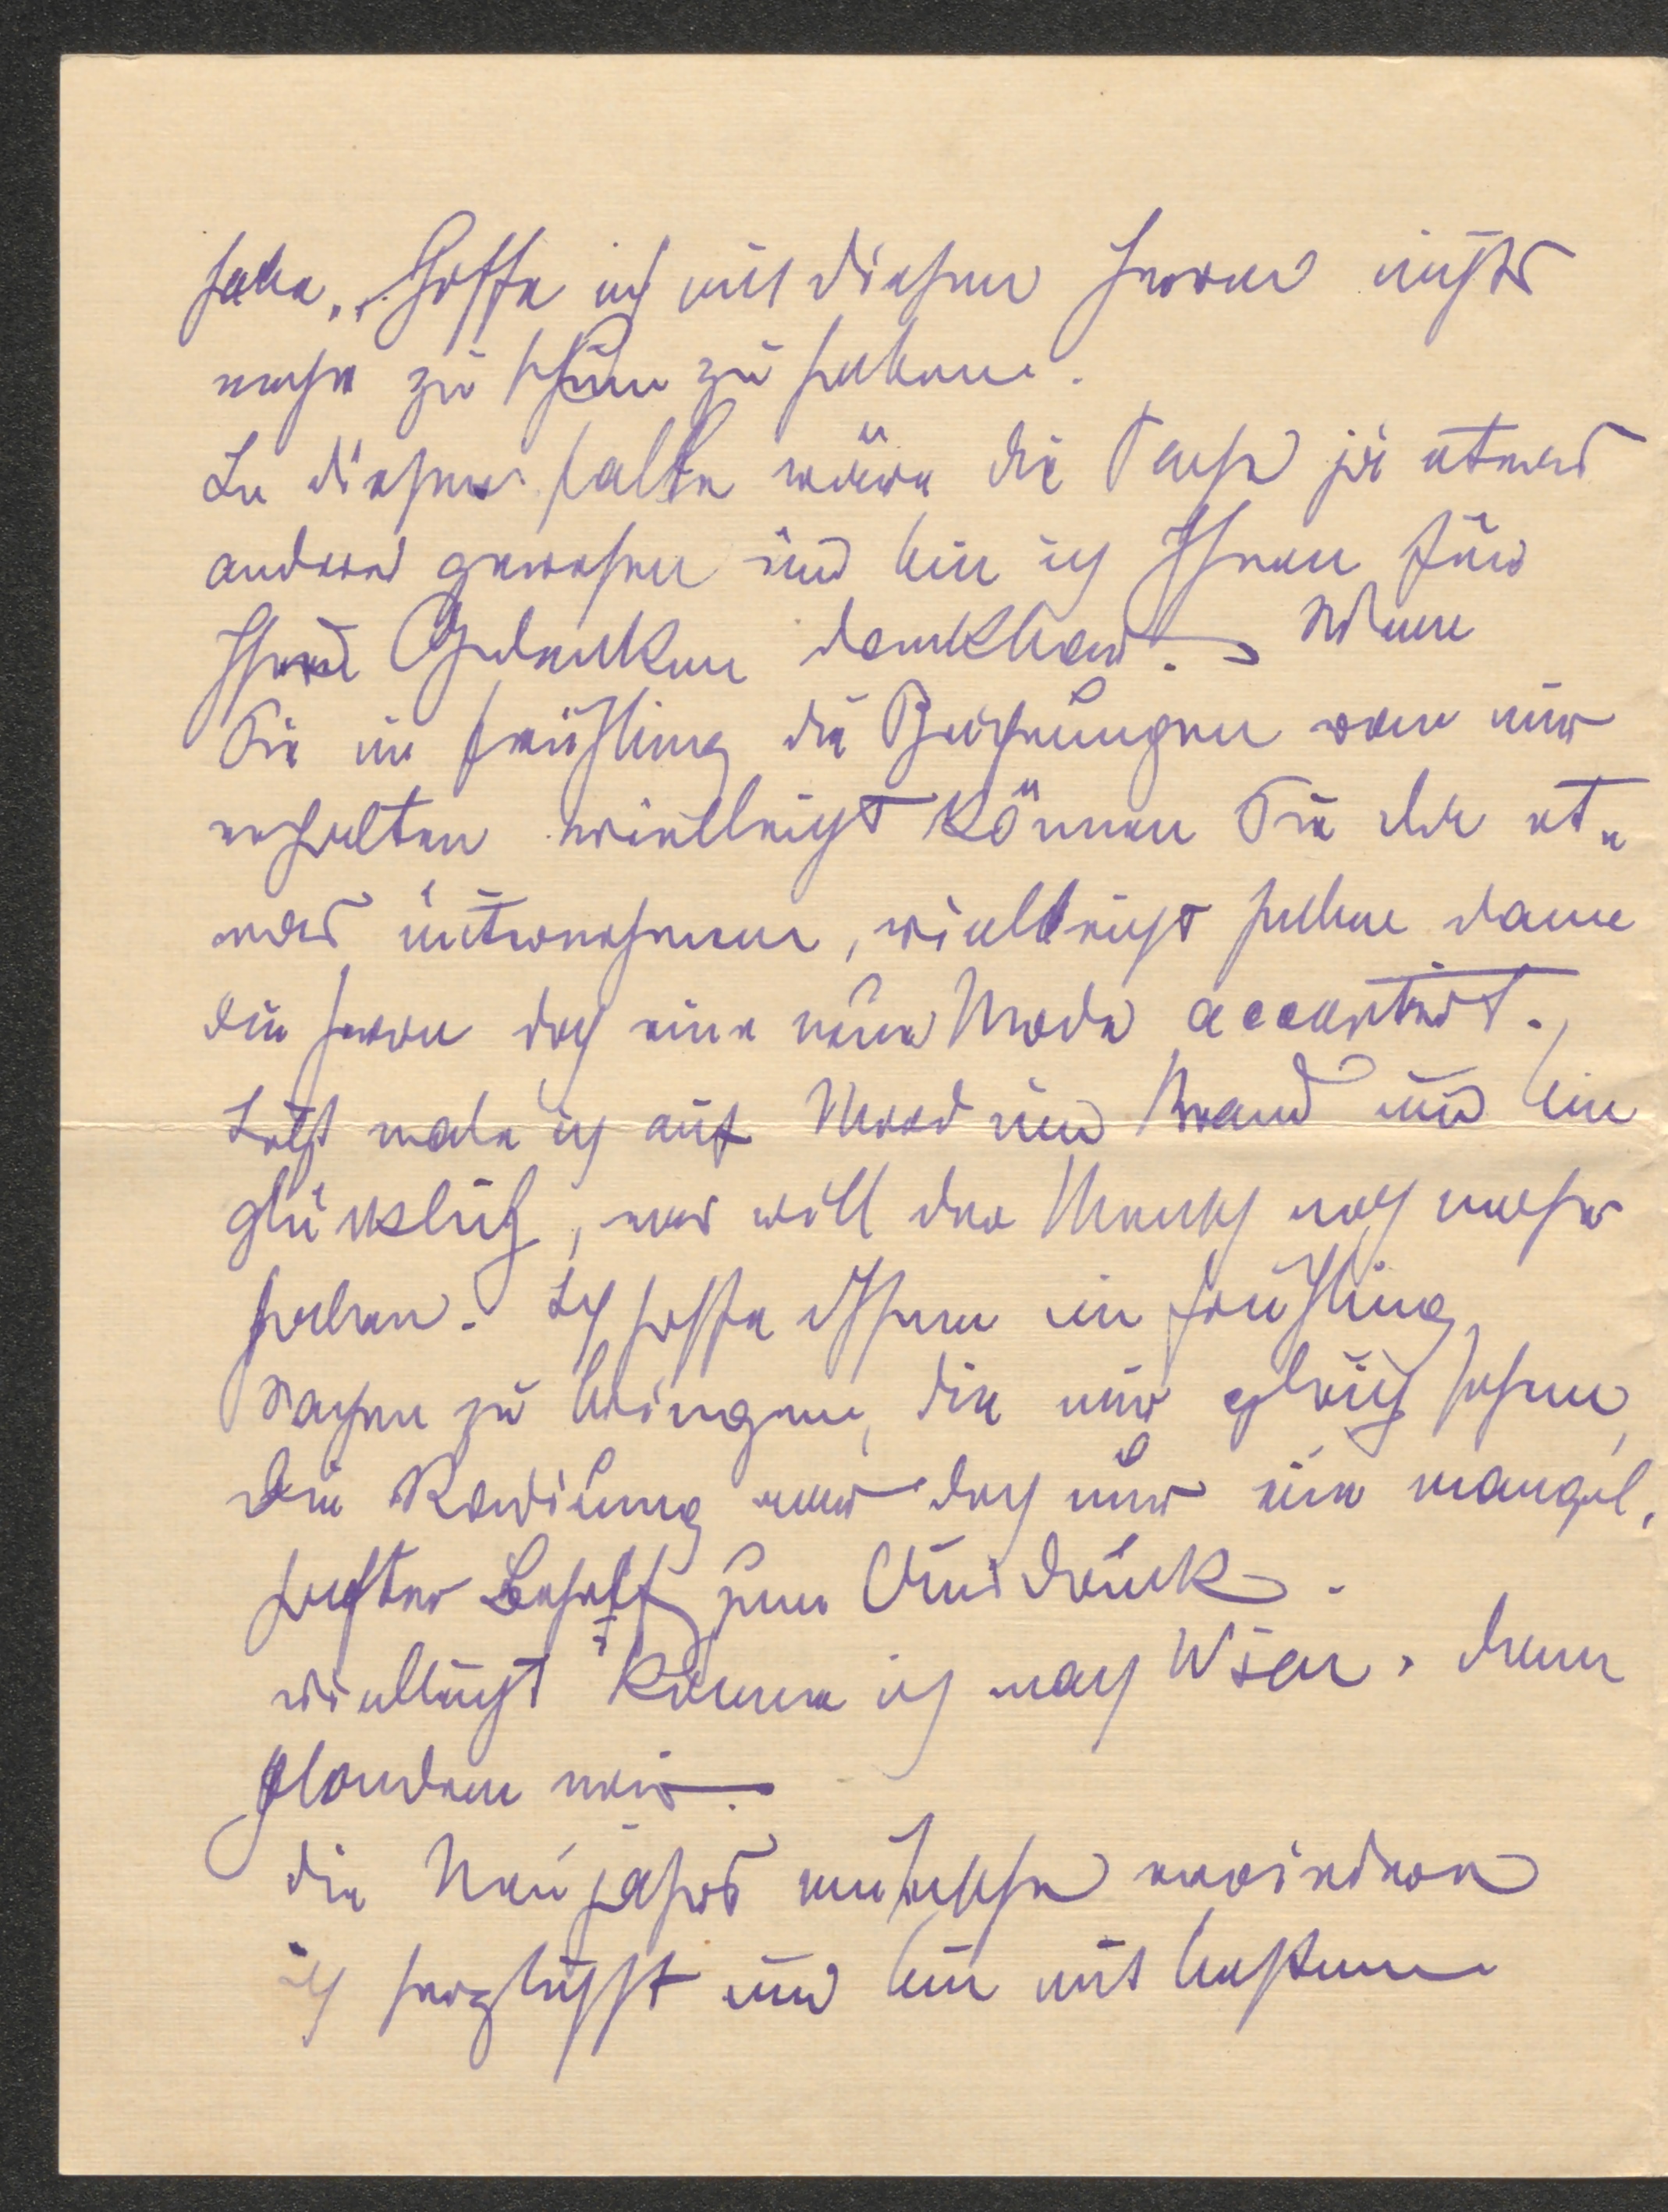 habe, hoffe ich mit diesen Herren nichts
mehr zu thun zu haben.
In diesem Falle wäre die Sache ja etwas
anderes gewesen und bin ich Ihnen für
Ihr Gedenken dankbar. Wenn
Sie im Frühling die Zeichnungen von mir
erhalten vielleicht können Sie da et„
was unternehmen, vielleicht haben dann
die Herren doch eine neue Mode acceptirt.
Jetzt male ich auf Mord und Brand und bin
glücklich, was will der Mensch noch mehr
haben. Ich hoffe Ihnen im Frühling
Sachen zu bringen, die mir gleich sehen,
die Radirung war doch nur ein mangel„
hafter Behelf zum Ausdruck.
vielleicht komme ich nach Wien, dann
plaudern wir.
die Neujahrswünsche erwiedere
ich herzlichst und bin mit besten